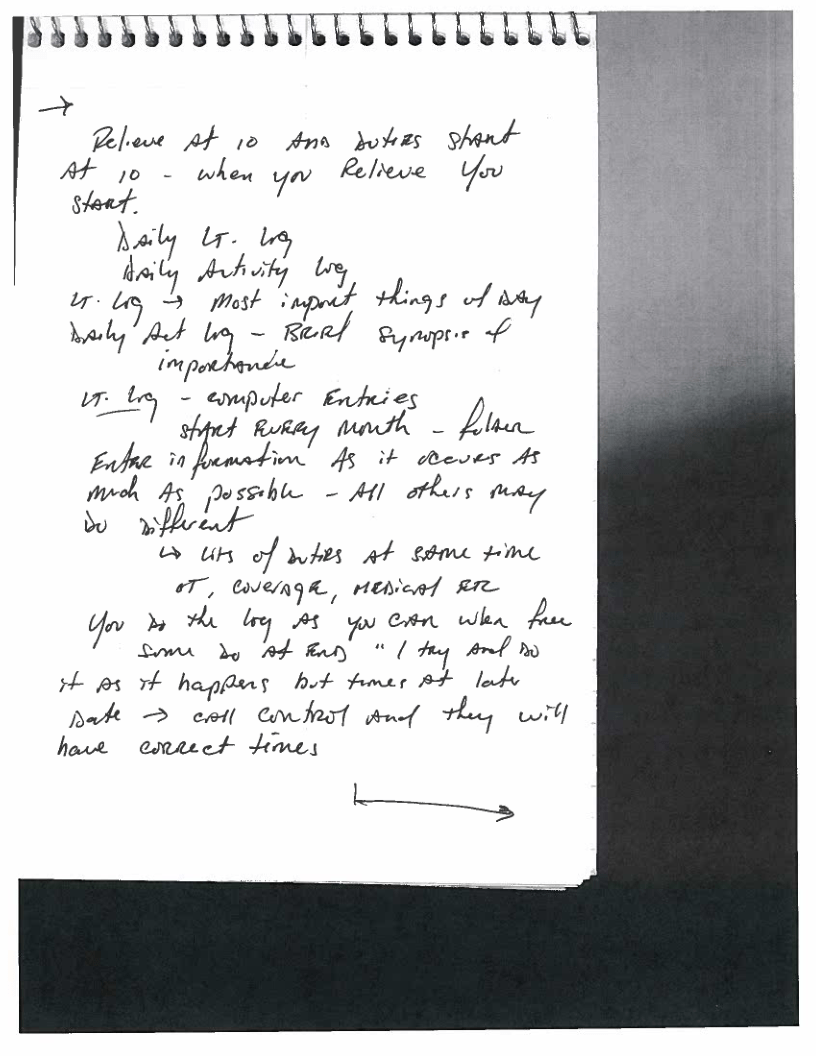 →
Relieve At 10 And Duties Start
At 10 - when you Relieve You
Start.
Daily LT. Log
Daily Activity Log
LT. Log → Most import things of DAY
Daily Act Log - Brief Synopsis of
importance
LT. Log - computer Entries
start EVERY Month - folder
Enter information As it occurs As
much As possible - All others may
do Different
↳ Lots of duties at same time
OT, coverage, MEDICAL ETC
You do the log as you can when free
Some do at End "I try and do
it as it happens but times at later
Date → call control and they will
have correct times